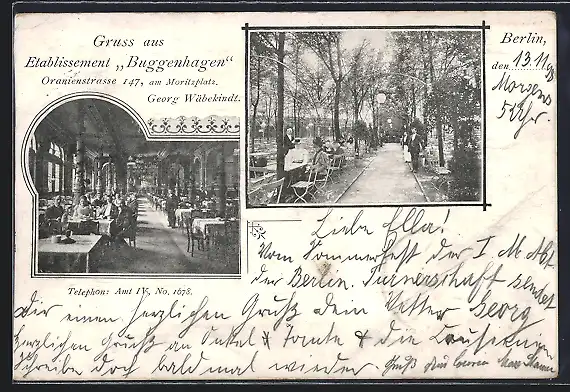 Gruss aus
Etablissement „Buggenhagen“
Oranienstrasse 147, am Moritzplatz.
Georg Wäbekindt.
Telephon: Amt IV, No. 1678.
Berlin,
den 13.11.
Morgens
5 Uhr.
Liebe Ella!
Vom Sommerfest der I. M Abt
der Berlin. Turnerschaft sendet
Dir einen herzlichen Gruß Dein Vetter Georg
herzlichen Gruß an Onkel & Tante & die
Schreibe doch bald mal wieder